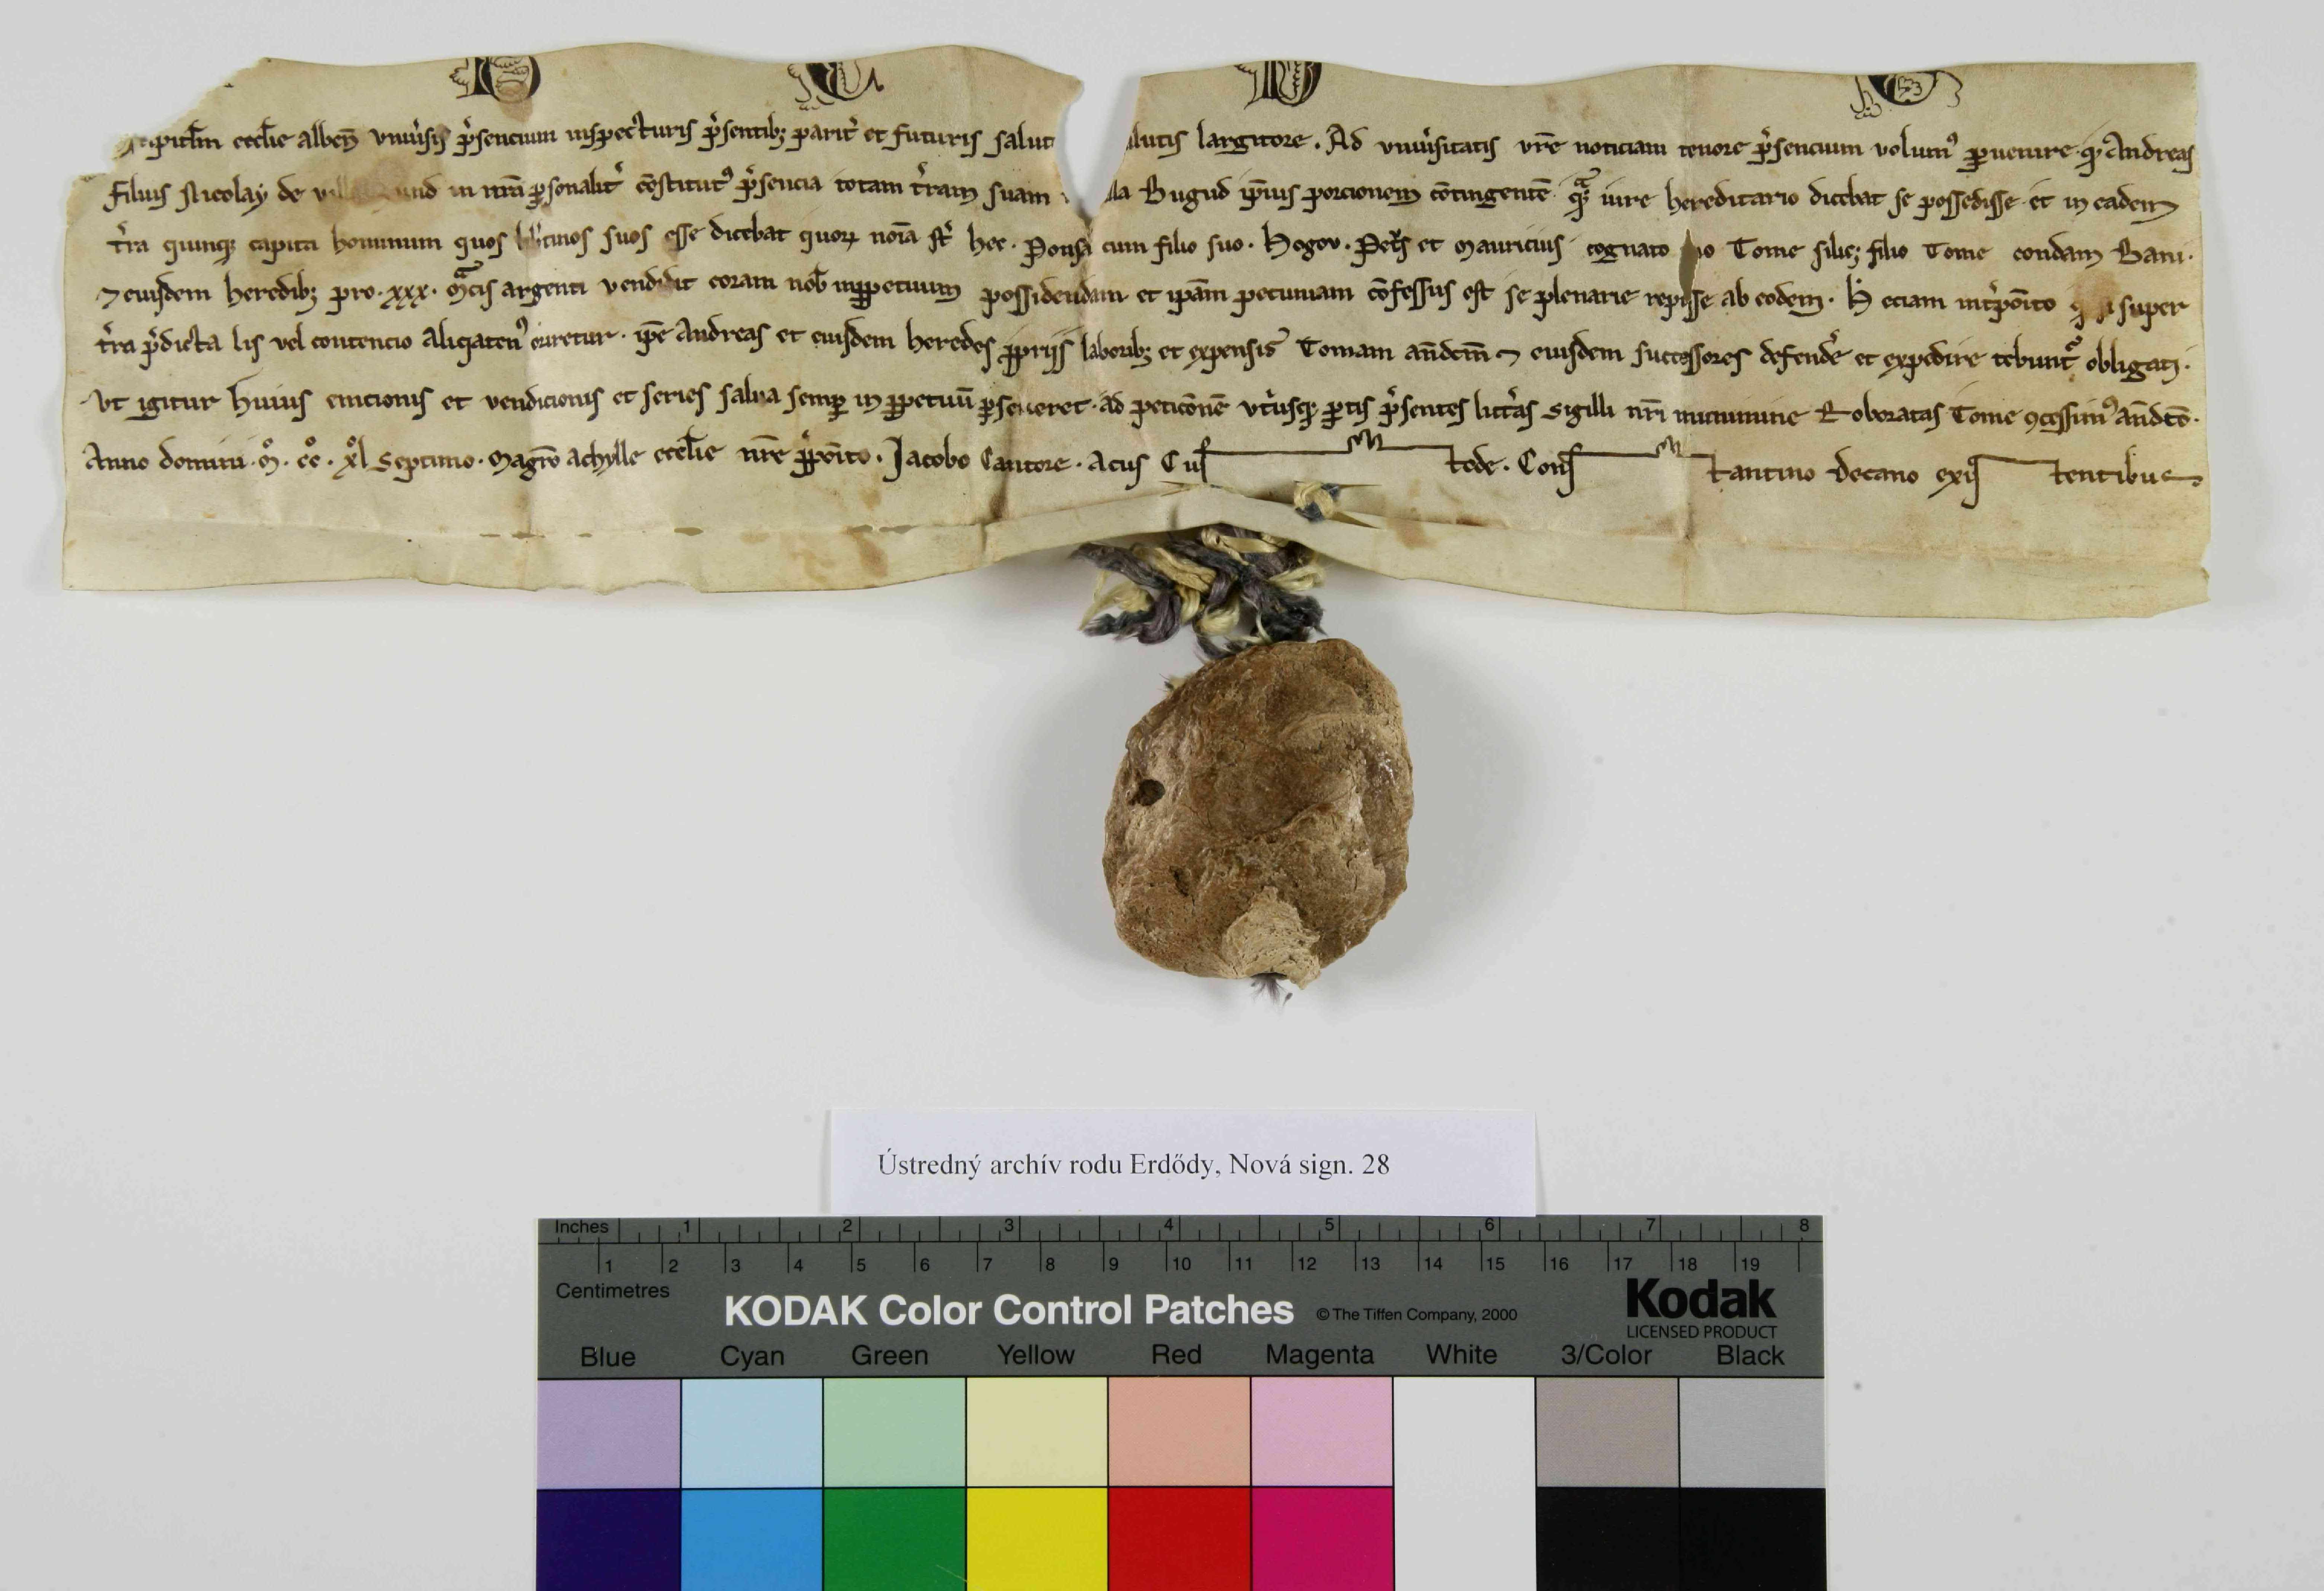 ecclie alben vniuersis presencium inspecturis presentibz parit et futuris salut lutis largitore. Ad vniuersitatis vre noticiam tenore presencium volum peruenire qd Andreas
filius Nicolay de vill und in nra personalit constitut presencia totam tram suam lla Bugud ipius porcionem contingente iure hereditario dicebat se possedisse et in eadem
tra quinqz capita hominum quos suos esse dicebat quorum noia st hec. Ponsa cum filio suo. Hegov. Petrs et Mauricius cognato Tome filio Tome condam Bani.
eiusdem heredibz pro. xxx. mcis argenti vendidit coram nob inperpetuum possidendam et ipam pecuniam confessus est se plenarie ab eodem. H eciam intrpoito super
tra predicta lis vel contencio aliqaten oriretur. ipe Andreas et eiusdem heredes propriis laboribz et expensis Tomam andem eiusdem successores defendere et expedire tebunt obligati.
Vt igitur huius emcionis et vendicionis et series salua semper in perpetuu perseueret. ad peticone vtriusqz ptis presentes littras sigilli nri munimine Roboratas Tome concessim andco.
Anno domini. M. CC. XL Septimo. Magro achylle ecclie nre ppoito. Jacobo Cantore. Acus Cus tode. Cons tantino Decano exis tentibus
Ústredný archív rodu Erdődy, Nová sign. 28
Inches 1 2 3 4 5 6 7 8
1 2 3 4 5 6 7 8 9 10 11 12 13 14 15 16 17 18 19
Centimetres
KODAK Color Control Patches © The Tiffen Company, 2000
Kodak
LICENSED PRODUCT
Blue Cyan Green Yellow Red Magenta White 3/Color Black